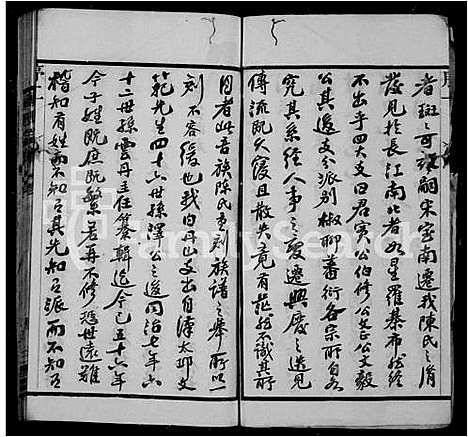 者斑斑可考嗣宋室南遷我陳氏之滑
發見於長江南北者如星羅棊布然終
不出乎四大支曰君實公伯修公文正公文毅
公其迻支分派別椒聊蕃衍各宗所自各
究其系經人事之變遷興廢之迭見
傳流既久寖且散失竟有茫然不識其所
自者此吾族陳氏重刻族譜之舉所以
刻不容緩也我曰丹山支出自漳太邱文
範先生四十六世孫澤公之後同治七年六
十二世孫雲丹主任纂輯迄今已五十六年
今子姓既庶既繁若再不修恐世遠難
稽知有姓而不知有其先知有派而不知有
FamilySearch